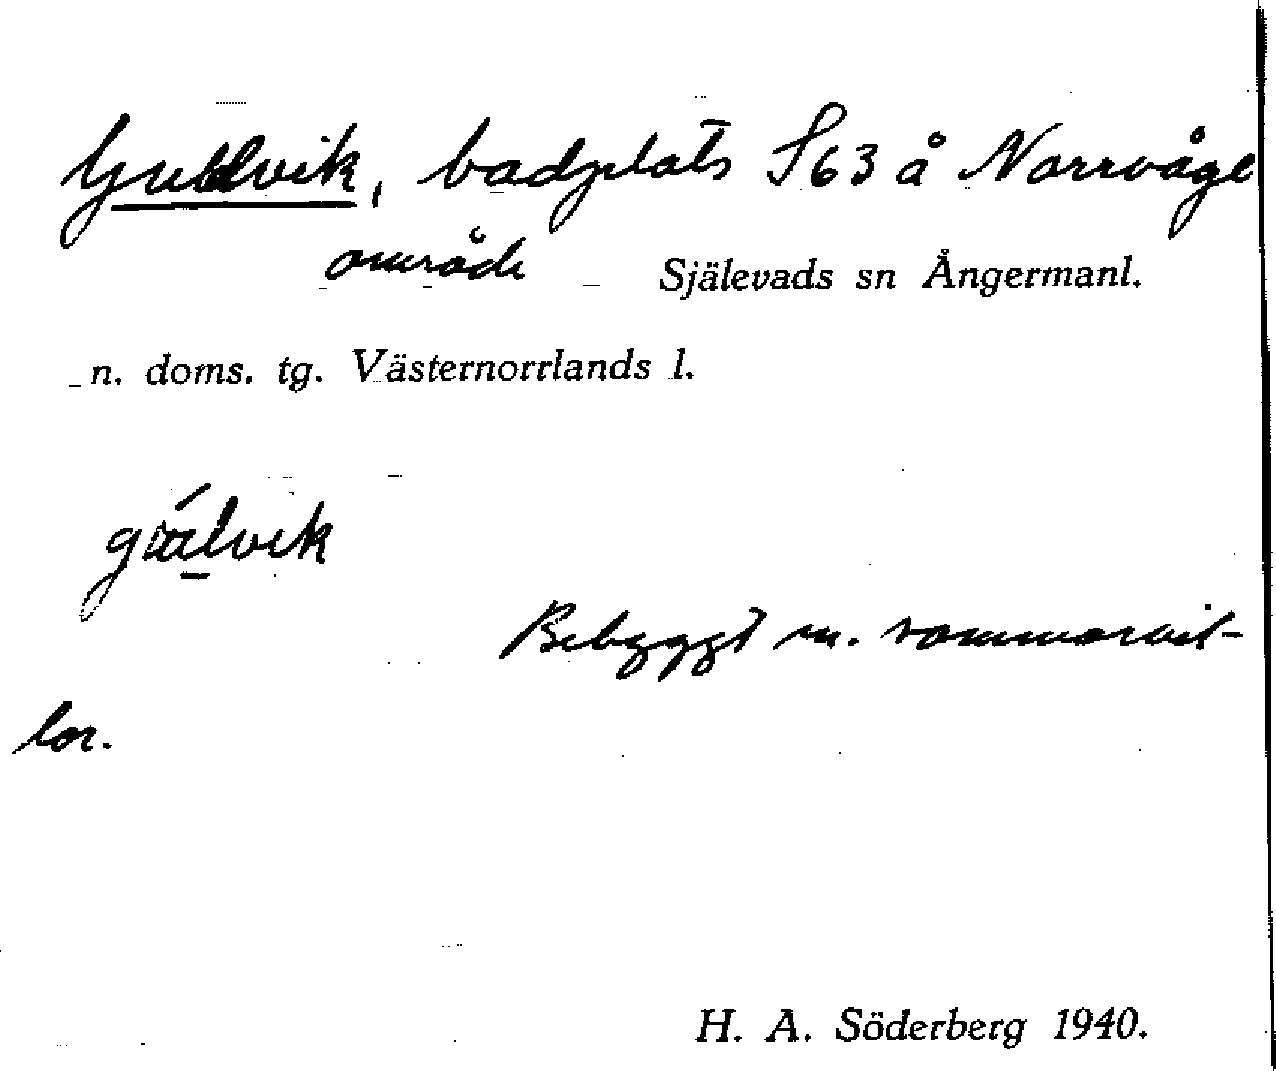 Gullvik, badplats S63 å Norrvåge
område Själevads sn Ångermanl.
n. doms. tg. Västernorrlands l.
Bebyggt m. sommarvil-
lor.
H. A. Söderberg 1940.